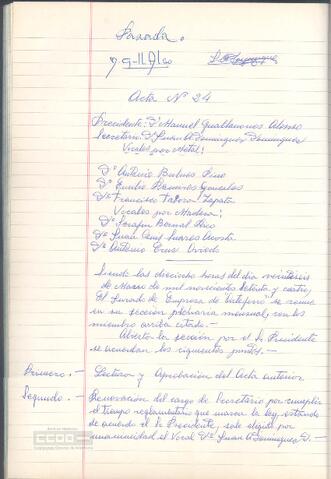 Pasada.
Acta Nº 24
Precidente: Dº Manuel Guatllanones Alonso
Secretario: Dº Juan A Dominguez Dominguez
Vocales por Metal:
Dº Antonio Bulnes Pino
Dº Emilio Ramires Gonzales
Dº Francisco Zapata
Vocales por Madera:
Dº Serafin Bernal Rico
Dº Juan Cruz Suares Acosta
Dº Antonio Cruz Oviedo
Siendo las dieciocho horas del dia veintiseis
de Marzo de mil novecientos setenta y cuatro,
El Jurado de Empresa de se reune
en su sección plenaria mensual, con los
miembro arriba citado. -
Abierta la sección por el Sr Presidente
se acuerdan los siguientes puntos. -
Primero. - Lectura y Aprobación del Acta anterior.
Segundo. - Renovación del cargo de Secretario por cumplir
el tiempo reglamentario que marca la ley, estando
de acuerdo el Sr Presidente, sale elegido por
unanimidad el Vocal Dº Juan A Dominguez D. -
CCOO